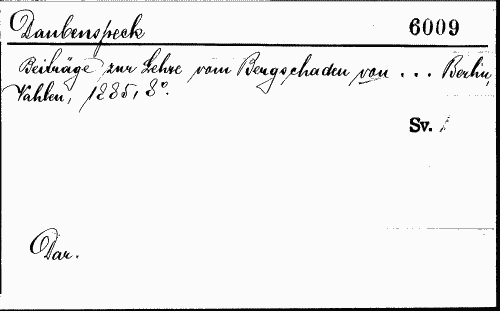 Daubenspeck 6009
Beiträge zur Lehre vom Bergschaden von ... Berlin,
Vahlen, 1885, 8°.
Sv.
Dar.